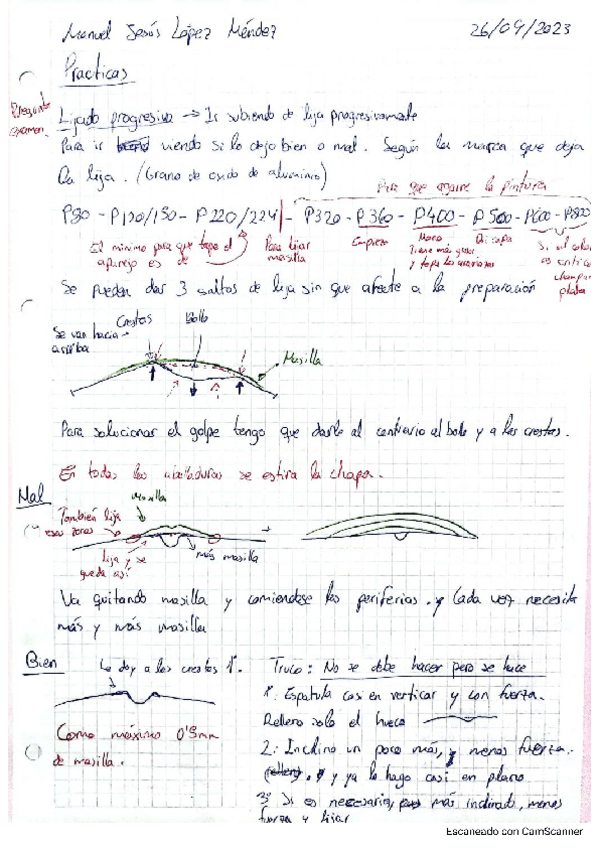 Manuel Jesús López Méndez 26/09/2023
Practicas
Pregunta examen.
Lijado progresivo → Ir subiendo de lija progresivamente
Para ir viendo si lo dejo bien o mal. Según la marca que deja
la lija. (Grano de oxido de aluminio)
Para que agarre la pintura
P80 - P120/150 - P220/224 - P320 - P360 - P400 - P500 - P600 - P800
El mínimo para que tape el aparejo es de
Para lijar masilla
Empiezo
Mono
Tiene más grosor y tapa los arañazos
Bicapa
Si el color es critico
plata
Se pueden dar 3 saltos de lija sin que afecte a la preparación
Crestas Bollo
Se van hacia arriba
Masilla
Para solucionar el golpe tengo que darle al contrario al bollo y a las crestas.
En todas las abolladuras se estira la chapa.
Mal
Masilla
También lija esas zonas
lija y se queda así
más masilla
Va quitando masilla y comiendose las periferias. y Cada vez necesita
más y más masilla
Bien
Le doy a las crestas 1º.
Como máximo 0'5mm
de masilla.
Truco: No se debe hacer pero se hace
1º. Espatula casi en vertical y con fuerza.
Relleno solo el hueco
2: Inclino un poco más, y menos fuerza.
y ya lo hago casi en plano
3º Si es necesario, más inclinado, menos
fuerza y lijar
Escaneado con CamScanner